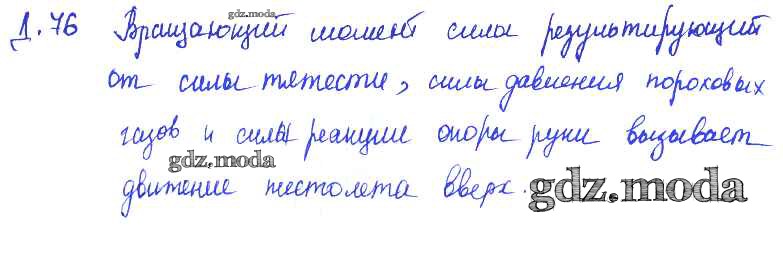 Д. 76 Вращающий момент сила результирующий
от силы тяжести, силы давления пороховых
газов и силы реакции опоры руки вызывает
движение пистолета вверх.
gdz.moda
gdz.moda
gdz.moda